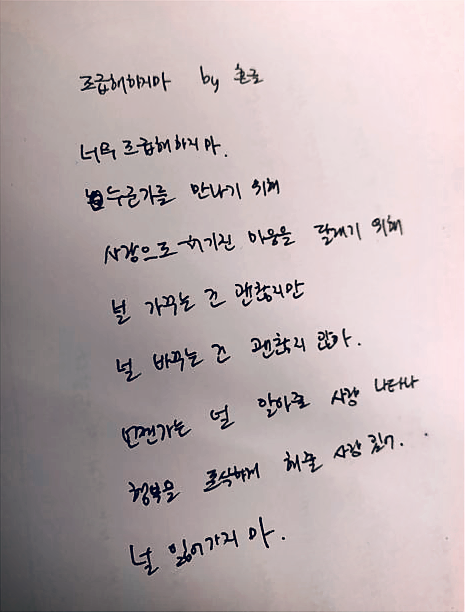 조급해하지마 by 흔글
너무 조급해하지 마.
누군가를 만나기 위해
사랑으로 허기진 마음을 달래기 위해
널 가꾸는 건 괜찮지만
널 바꾸는 건 괜찮지 않아.
언젠가는 널 알아줄 사람 나타나
행복을 푹식하게 해줄 사람 있어.
널 잃어가지 마.